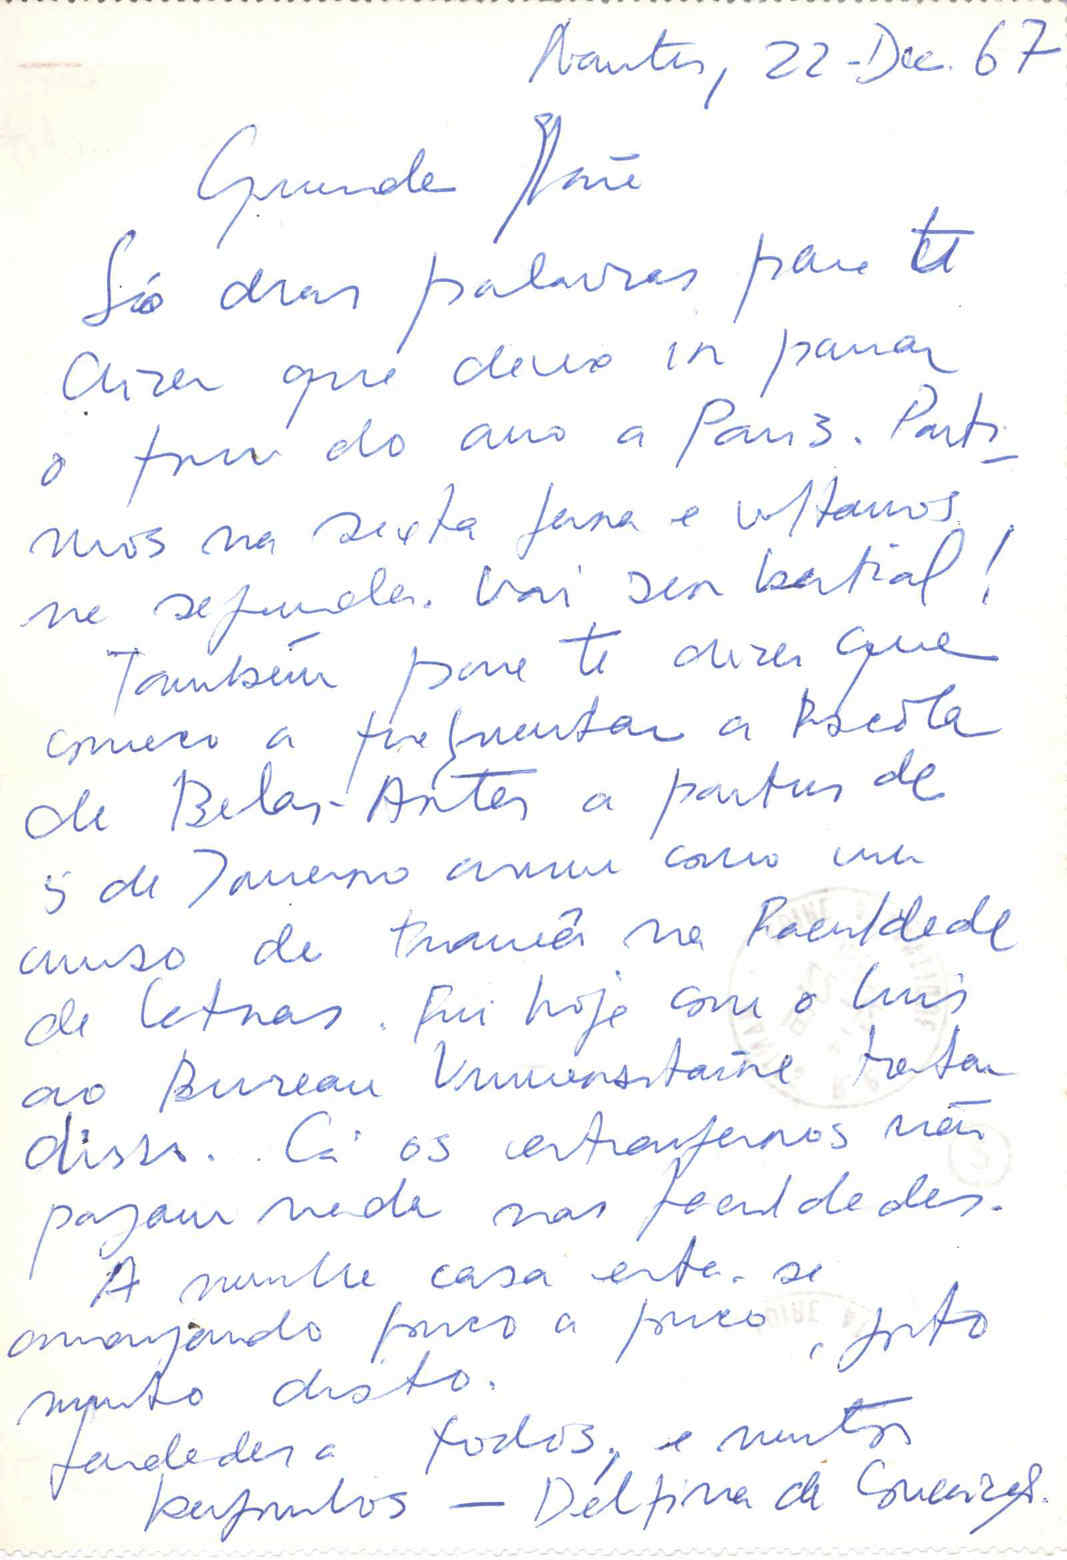 Nantes, 22-Dec. 67
Grande
Só duas palavras para te
dizer que devo ir passar
o fim do ano a Paris. Parti-
mos na sexta feira e voltamos
na segunda. Vai ser bestial!
Também para te dizer que
começo a frequentar a Escola
de Belas-Artes a partir de
5 de Janeiro assim como um
curso de francês na Faculdade
de Letras. Fui hoje com o Luis
ao Bureau Universitaire tratar
disso. Cá os estrangeiros não
pagam nada nas faculdades.
A minha casa está-se
arranjando pouco a pouco, gosto
muito disto.
Saudades a todos, e muitos
beijinhos — Delfina da